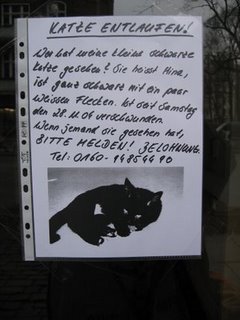 KATZE ENTLAUFEN!
Wer hat meine kleine schwarze
Katze gesehen? Sie heisst Mina,
ist ganz schwarz mit ein paar
weissen Flecken. Ist seit Samstag
den 28.11.09 verschwunden.
Wenn jemand sie gesehen hat,
BITTE MELDEN! BELOHNUNG.
Tel: 0160-94854490